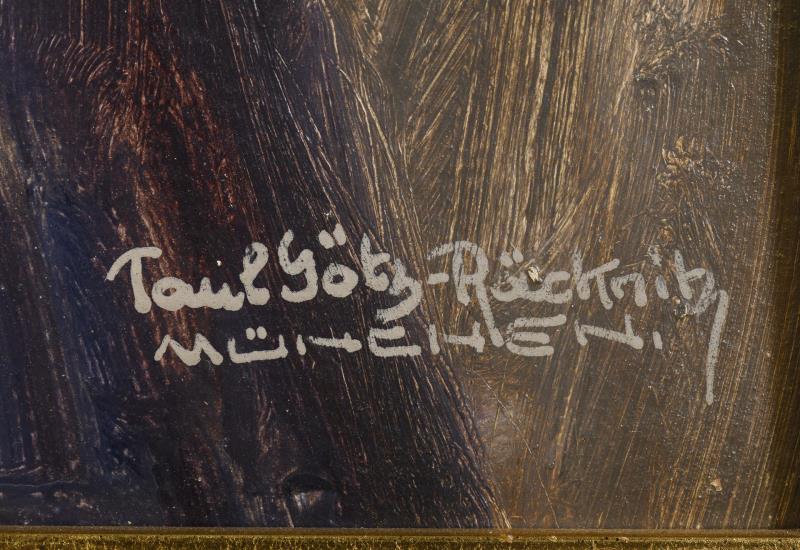 Paul Götz-Räcknitz
MÜNCHEN.